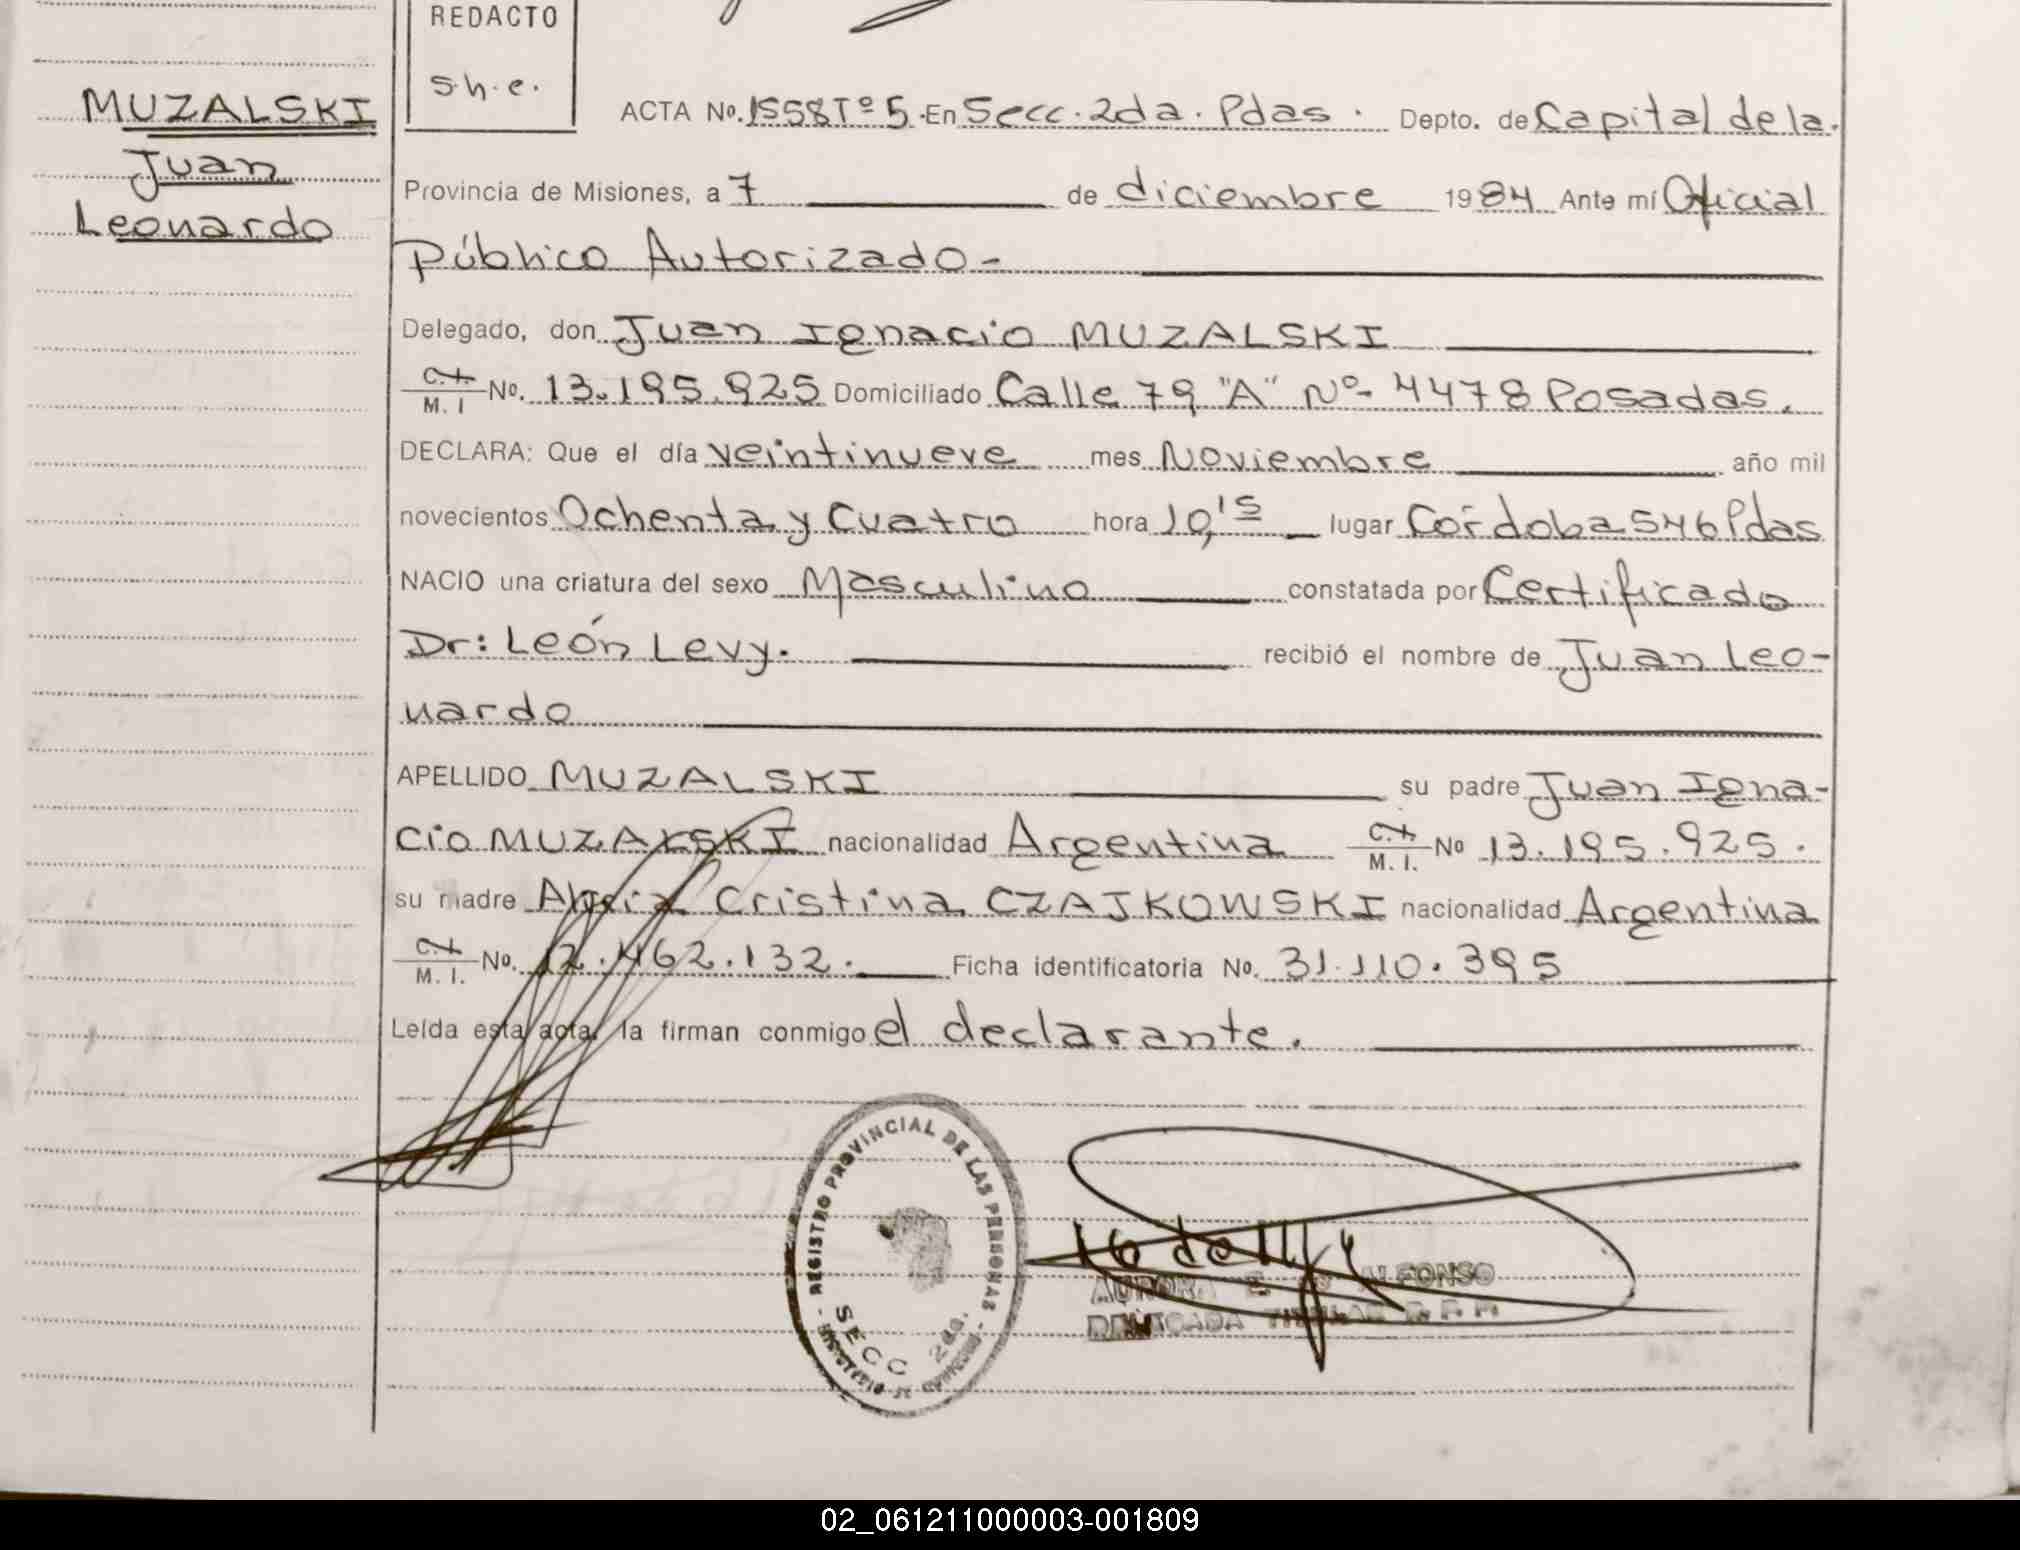 REDACTO
s.h.e.
MUZALSKI
Juan
Leonardo
ACTA No. 1558 Tº 5 - En Secc. 2da. Pdas. Depto. de Capital de la
Provincia de Misiones, a 7 de diciembre 1984 Ante mí Oficial
Público Autorizado -
Delegado, don Juan Ignacio MUZALSKI
C.I. M. I No. 13.195.925 Domiciliado Calle 79 "A" Nº 4478 Posadas.
DECLARA: Que el día veintinueve mes Noviembre año mil
novecientos Ochenta y Cuatro hora 10,15 lugar Córdoba 546 Pdas
NACIO una criatura del sexo Masculino constatada por Certificado
Dr: León Levy. recibió el nombre de Juan Leo-
nardo
APELLIDO MUZALSKI su padre Juan Igna-
cio MUZALSKI nacionalidad Argentina C.I. M. I. No 13.195.925.
su madre Cristina CZAJKOWSKI nacionalidad Argentina
C.I. M. I. No. 12.462.132. Ficha identificatoria No. 31.110.395
Leída esta acta, la firman conmigo el declarante.
REGISTRO PROVINCIAL DE LAS PERSONAS
SECC 2da.
AURORA E. ALFONSO
DELEGADA TITULAR R. P. P.
02_061211000003-001809